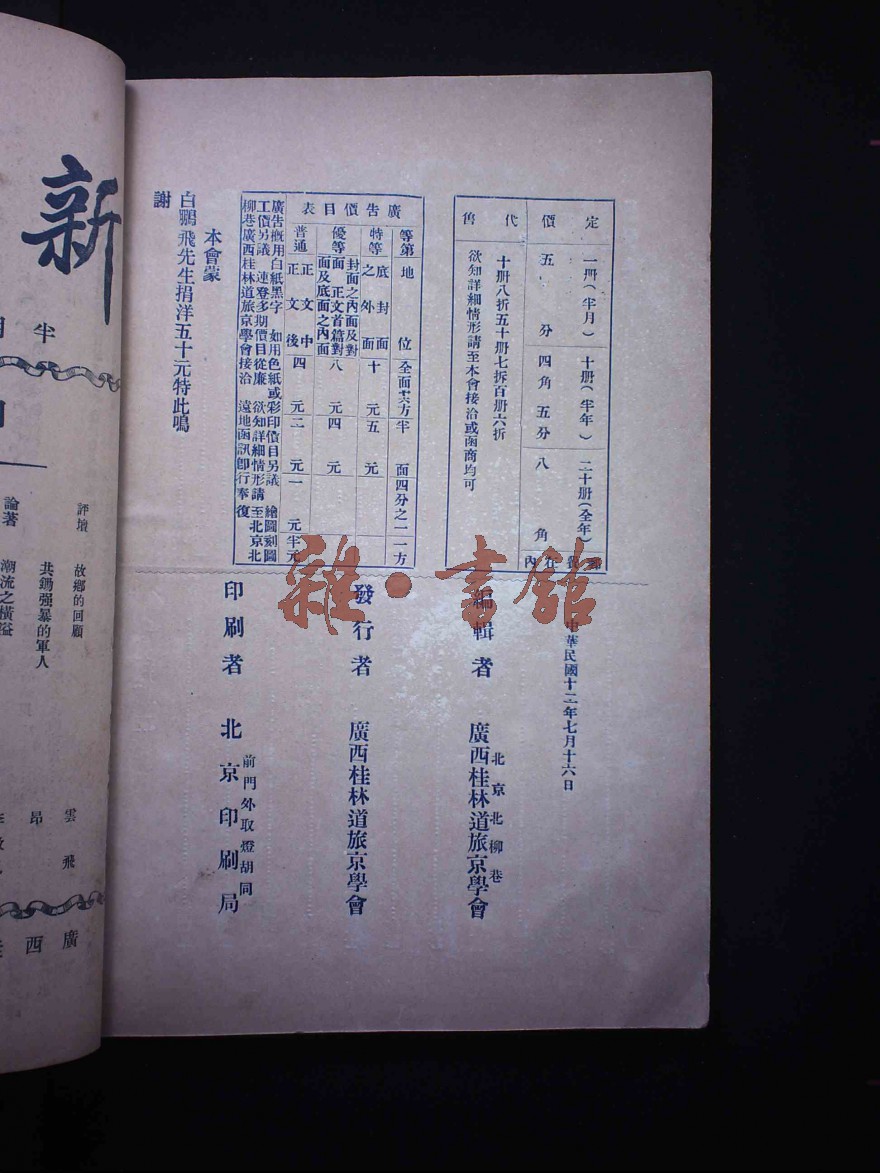 定價
一册(半月)
十册(半年)
二十册(全年)
五分
四角五分
八角
在內
代售
十册八折五十册七折百册六折
欲知詳細情形請至本會接洽或函商均可
廣告價目表
等第
地位
全面
半面
四分之一
一方
特等
底封面之外面
十元
五元
優等
封面之內面及對面正文首篇對面及底面之內面
八元
四元
普通
正文中
正文後
四元
二元
一元
半元
廣告概用白紙黑字 如用色紙或彩印價目另議 繪圖刻圖
工價另議 連登多期價目從廉 欲知詳細情形請至北京北
柳巷廣西桂林道旅京學會接洽 遠地函訊即行奉復
本會蒙
白鵬飛先生捐洋五十元特此鳴
謝
中華民國十二年七月十六日
編輯者
北京北柳巷
廣西桂林道旅京學會
發行者 廣西桂林道旅京學會
印刷者
前門外取燈胡同
北京印刷局
雜·書館
新
半
評壇 故鄉的回顧
雲飛
共鋤强暴的軍人
昂
論著 潮流之橫溢
廣西